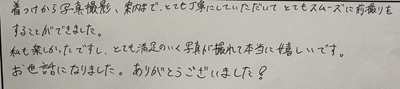 着つけから写真撮影、案内まで、とても丁寧にしていただいて とてもスムーズに前撮りを
することができました。
私も楽しかったですし、とても満足のいく写真が撮れて本当に嬉しいです。
お世話になりました。ありがとうございました！